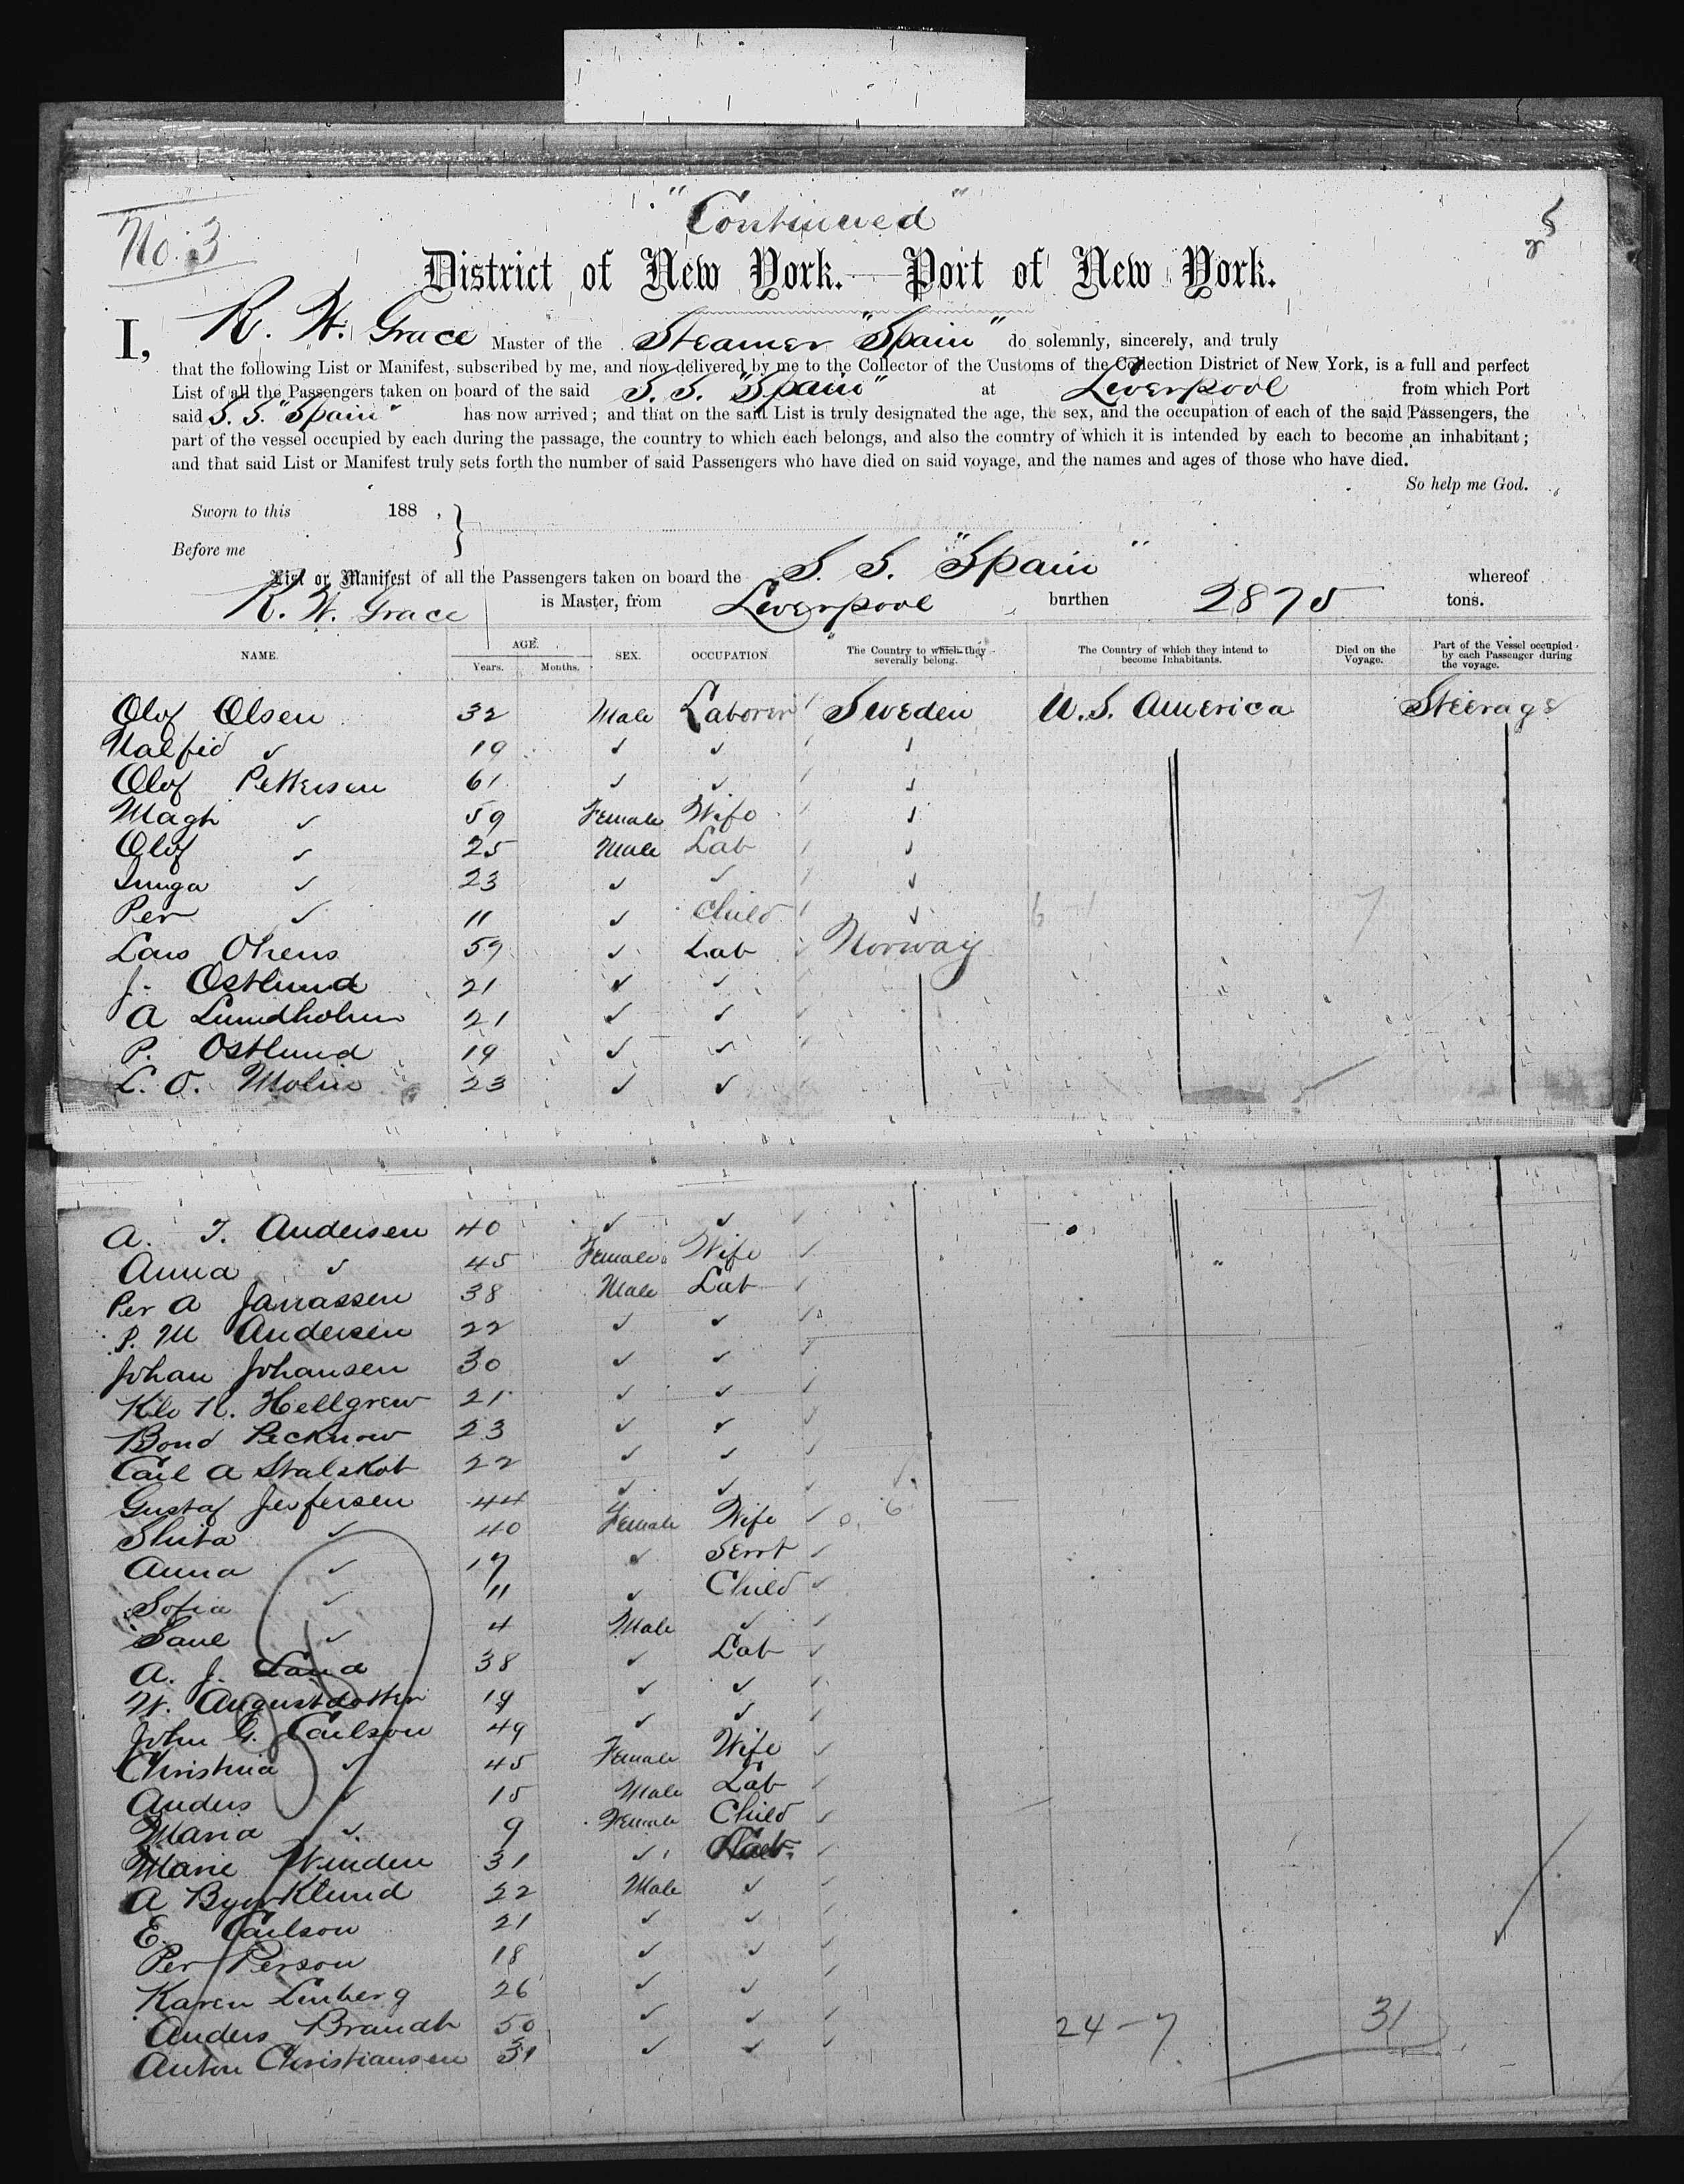 "Continued"
No. 3
District of New York.—Port of New York.
I, R. W. Grace Master of the Steamer "Spain" do solemnly, sincerely, and truly
that the following List or Manifest, subscribed by me, and now delivered by me to the Collector of the Customs of the Collection District of New York, is a full and perfect
List of all the Passengers taken on board of the said S. S. "Spain" at Liverpool from which Port
said S. S. "Spain" has now arrived; and that on the said List is truly designated the age, the sex, and the occupation of each of the said Passengers, the
part of the vessel occupied by each during the passage, the country to which each belongs, and also the country of which it is intended by each to become an inhabitant;
and that said List or Manifest truly sets forth the number of said Passengers who have died on said voyage, and the names and ages of those who have died.
So help me God.
Sworn to this 188 ,
Before me
List or Manifest of all the Passengers taken on board the S. S. "Spain" whereof
R. W. Grace is Master, from Liverpool burthen 2875 tons.
NAME. AGE. Years. Months. SEX. OCCUPATION The Country to which they severally belong. The Country of which they intend to become Inhabitants. Died on the Voyage. Part of the Vessel occupied by each Passenger during the voyage.
Olof Olsen 32 Male Laborer Sweden U.S. America Steerage
✓ 19 ✓ ✓ ✓
Olof Petterson 61 ✓ ✓ ✓
Magh ✓ 59 Female Wife ✓
Olof ✓ 25 Male Lab ✓
Inga ✓ 23 ✓ ✓ ✓
Per ✓ 11 ✓ Child ✓ 6 - 1 7
Lars 59 ✓ Lab Norway
J. Ostlund 21 ✓ ✓
A Lundholm 21 ✓ ✓
P. Ostlund 19 ✓ ✓
L. O. Molin 23 ✓ ✓
A. J. Andersen 40 ✓ ✓ ✓
Anna ✓ 45 Female Wife ✓
Per A 38 Male Lab ✓
P. M Andersen 22 ✓ ✓ ✓
Johan Johansen 30 ✓ ✓ ✓
Hellgrew 21 ✓ ✓ ✓
Bond Pecknow 23 ✓ ✓ ✓
Carl A Stalskot 22 ✓ ✓ ✓
Gustaf Jepfersen 44 ✓ ✓ ✓
✓ 40 Female Wife ✓ 6
Anna ✓ 17 ✓ Servt ✓
Sofia ✓ 11 ✓ Child ✓
✓ 4 Male ✓ ✓
A. J. Land 38 ✓ Lab ✓
W. Augustdotter 19 ✓ ✓ ✓
John G. Carlson 49 ✓ ✓ ✓
Christina ✓ 45 Female Wife ✓
Anders ✓ 15 Male Lab ✓
Maria ✓ 9 Female Child ✓
Marie Winden 31 ✓ Lab ✓
A Byorklund 22 Male ✓ ✓
E. Carlson 21 ✓ ✓ ✓
Per Person 18 ✓ ✓ ✓
Karen Linberg 26 ✓ ✓ ✓
Anders Brandt 50 ✓ ✓ ✓ 24 - 7 31
Anton Christiansen 31 ✓ ✓ ✓